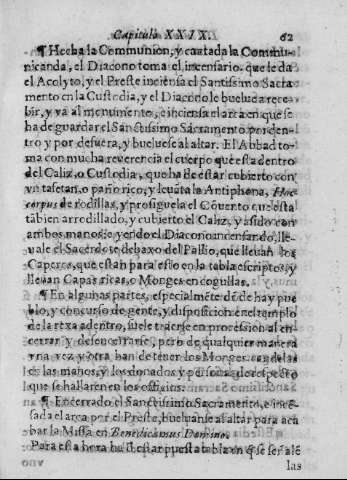 Capitulo XXIX. 62
¶ Hecha la Communion, y cantada la Commu-
nicanda, el Diacono toma el incensario que le da
el Acolyto, y el Preste inciensa el Santissimo Sacra
mento en la Custodia, y el Diacono le buelue a rece-
bir, y va al monumento, e inciensa el arca en que se
ha de guardar el Sanctissimo Sacramento por den-
tro y por defuera, y bueluese al altar. El Abbad to-
ma con mucha reuerencia el cuerpo que esta dentro
del Caliz, o Custodia, que ha de estar cubierto con
vn tafetan, o paño rico, y leuãta la Antiphona, Hoc
corpus de rodillas, y prosiguela el Cõuento que esta
tãbien arrodillado, y cubierto el Caliz, y asido con
ambos manos: e yendo el Diacono incensando, lle-
uale el Sacerdote debaxo del Pallio, que lleuan los
Caperos, que estan para esso en la tabla escriptos, y
lleuan Capas ricas, o Monges en cogullas.
¶ En algunas partes, especialmẽte dõde hay pue
blo, y concurso de gente, y disposicion en el templo
de la rexa adentro, suele traerse en procession al en-
cerrar y desencerrarse, pero de qualquier manera
vna vez y otra han de tener los Monges candelas
en las manos, y los donados y personas de respecto
que se hallaren en los officios.
¶ Encerrado el Sanctissimo Sacramento, e incẽ-
sada el arca por el Preste, bueluanse al altar para aca
bar la Missa en Benedicamus Domino.
Para esta hora ha de estar puesta tabla en que se señalẽ
las